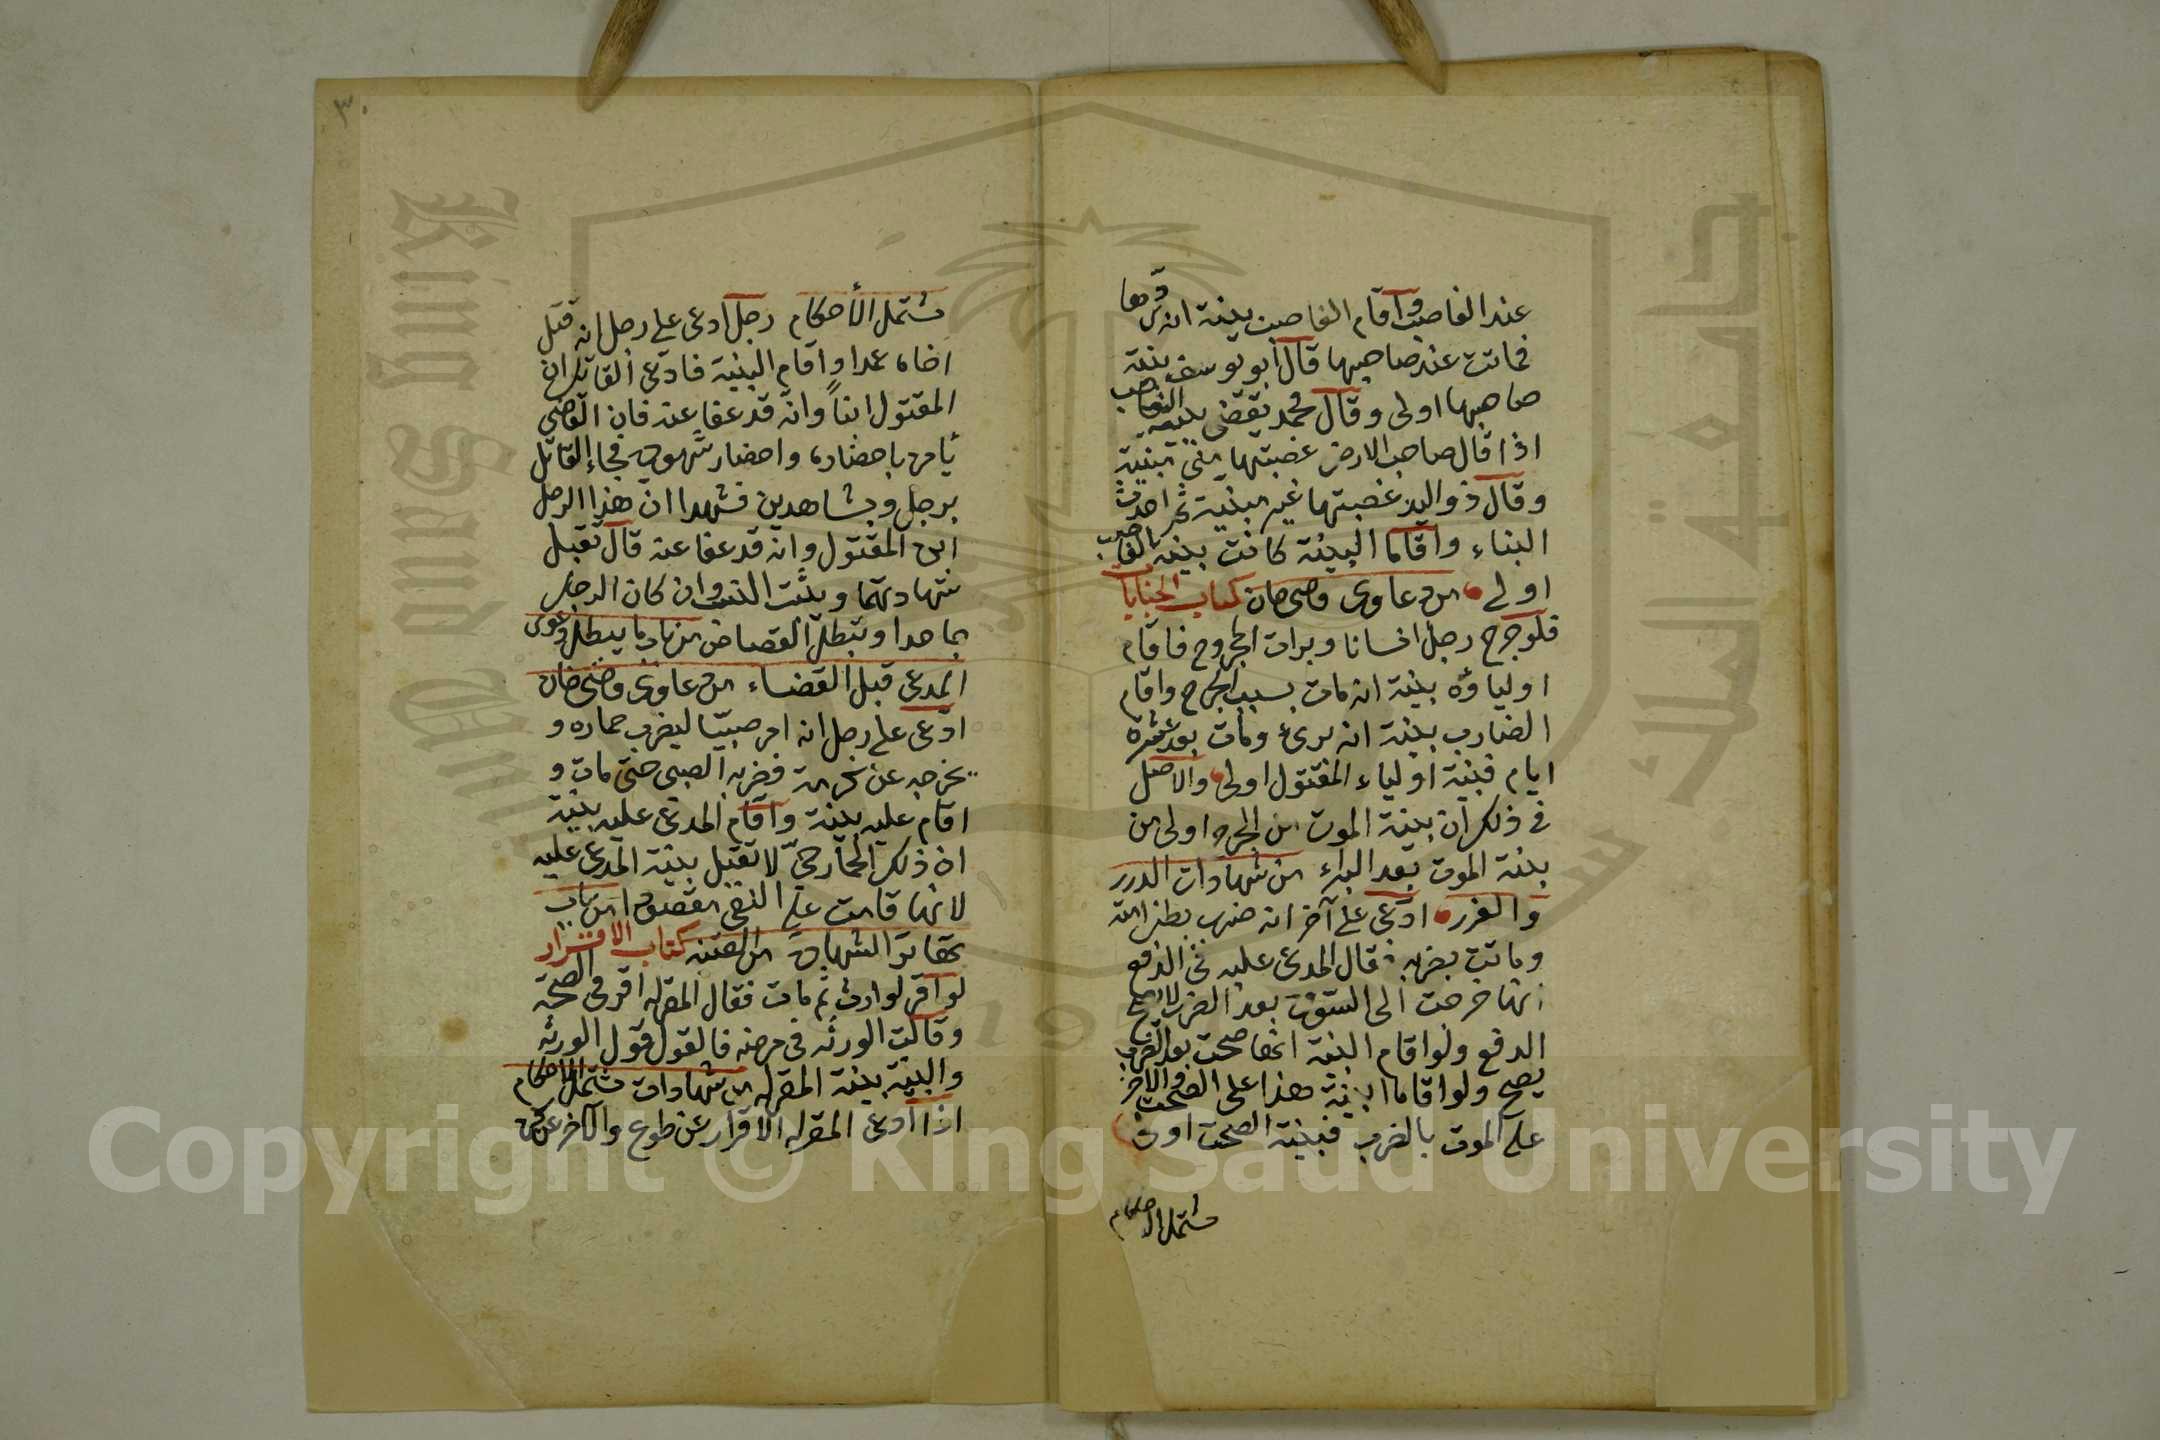 عند الغاصب وأقام الغاصب بينة انه ردّها
فماتت عند صاحبها قال أبو يوسف بينة
صاحبها اولى وقال محمد يقضى ببينة الغاصب
اذا قال صاحب الارض غصبتها منى مبنية
وقال ذو اليد غصبتها غير مبنية ثم احدث
البناء واقاما البينة كانت بينة الغاصب
اولى من دعاوى قاضى خان كتاب الجنايات
فلو جرح رجل انسانا ومات المجروح فاقام
اولياؤه بينة انه مات بسبب الجرح واقام
الضارب بينة انه برئ ومات بعد عشرة
ايام فبينة اولياء المقتول اولى والاصل
فى ذلك ان بينة الموت من الجرح اولى من
بينة الموت بعد البراء من شهادات الدرر
والغرر ادّعى على آخر انه ضرب بطن امته
وماتت بضربه فقال المدعى عليه فى الدفع
انها خرجت الى السوق بعد الضرب لا يصح
الدفع ولو اقام البينة انها صحت بعد الضرب
يصح ولو اقاما البينة هذا على الصحت والآخر
على الموت بالضرب فبينة الصحت اولى
مشتمل الاحكام
٣٠
مشتمل الأحكام رجل ادعى على رجل انه قتل
اخاه عمدا واقام البينة فادّعى القاتل ان
المقتول ابناً وانه قد عفا عنه فان القاضى
يأمره باحضاره واحضار شهوده فجاء القاتل
برجل وبشاهدين فشهدا ان هذا الرجل
ابن المقتول وانه قد عفا عنه قال تقبل
شهادتهما ويثبت النسب وان كان الرجل
جاحدا وتبطل القصاص من باب ما يبطل دعوى
المدعى قبل القضاء من دعاوى قاضى خان
ادّعى على رجل انه امر صبيّا ليضرب حماره و
يخرجه عن كرمه فضربه الصبى حتى مات و
اقام عليه بينة واقام المدعى عليه بينة
ان ذلك الحمار حىّ لا تقبل بينة المدعى عليه
لانها قامت على النفى مقصودا من باب
تهاتر الشهادة من القنية كتاب الاقرار
لو اقر لوارث ثم مات فقال المقر له اقر فى الصحة
وقالت الورثه فى مرضه فالقول قول الورثه
والبينة بينة المقر له من شهادات مشتمل الاحكام
اذا ادعى المقر له الاقرار عن طوع والآخر عن كره
Copyright © King Saud University
King Saud University
جامعة الملك سعود